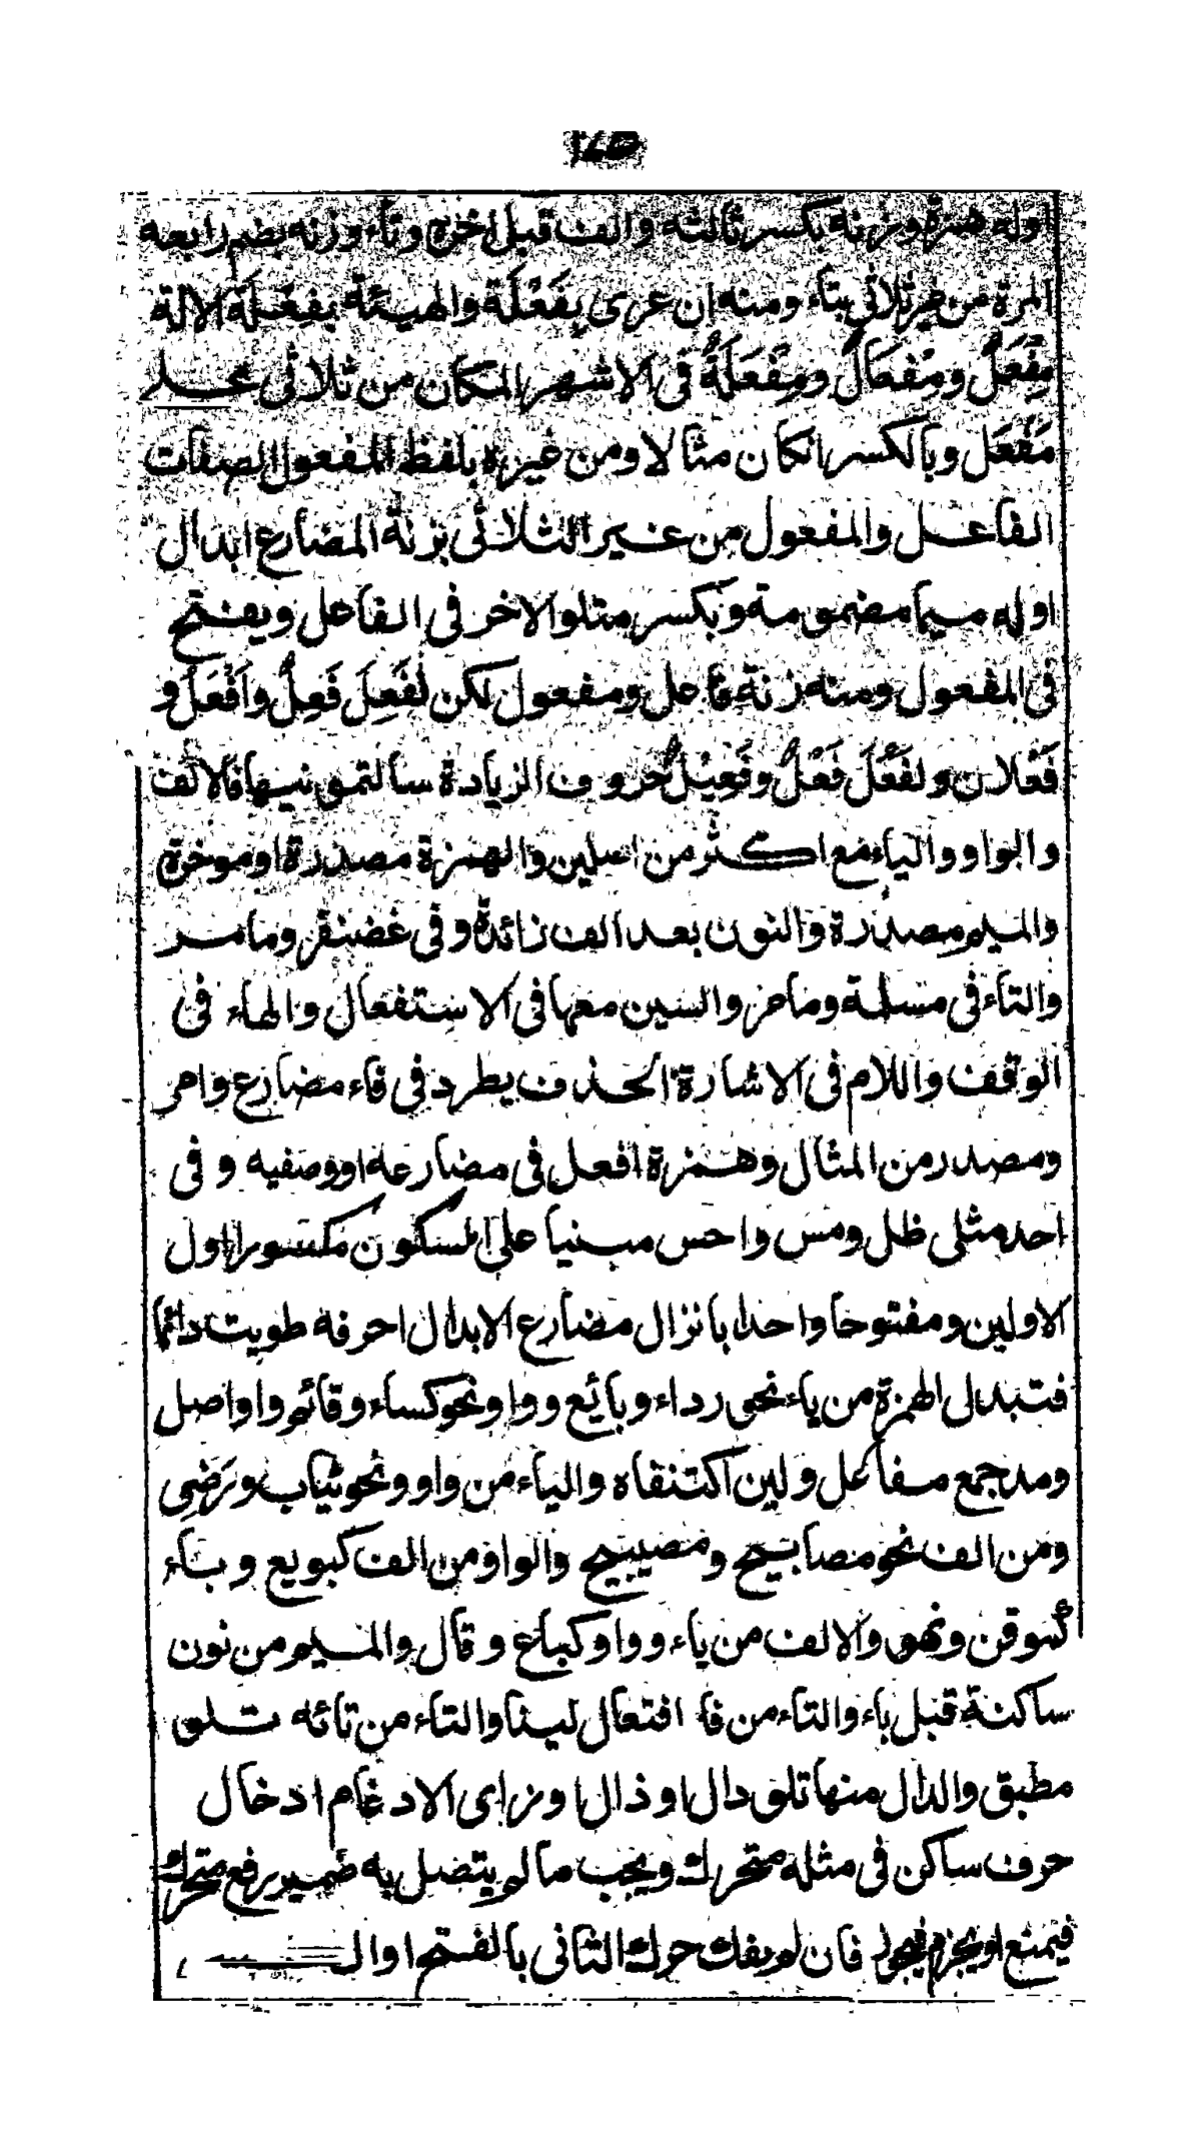 ١٤٥
اوله همزة وزنة بكسر ثالثه والف قبل اخره وتاء وزنه بضم رابعه
المرة من غير ثلاثى بتاء ومنه ان عرى بِفَعْلَة والهيئة بفِعْلَة الالة
مِفْعَلٌ ومِفْعَالٌ ومِفْعَلَةٌ فى الاشهر المكان من ثلاثى محله
مَفْعَل وبالكسر انكان مثالا ومن غيره بلفظ المفعول الصفات
الفاعل والمفعول من غير الثلاثى بزنة المضارع ابدال
اوله ميما مضمومة وبكسر متلو الاخر فى الفاعل ويفتح
فى المفعول ومنه زنة فاعل ومفعول لكن لفَعِلَ فَعِلٌ واَفْعَلُ و
فَعْلان ولفَعُلَ فَعْلٌ وفَعِيْلٌ حروف الزيادة سالتمونيها فالالف
والواو والياء مع اكثر من اصلين والهمزة مصدرة او موخرة
والميم مصدرة والنون بعد الف زائدة وفى غضنفر ومامر
والتاء فى مسلمة ومامر والسين معها فى الاستفعال والهاء فى
الوقف واللام فى الاشارة الحذف يطرد فى فاء مضارع وامر
ومصدر من المثال وهمزة افعل فى مضارعه او وصفيه وفى
احد مثلى ظل ومس واحس مبنيا على السكون مكسورا اول
الاولين ومفتوحا واحدا بانزال مضارع الابدال احرفه طويت دائما
فتبدل الهمزة من ياء نحو رداء وبائع وواو نحو كساء وقائم واواصل
ومد جمع مفاعل ولين اكتنفاه والياء من واو ونحو ثياب ورَضِى
ومن الف نحو مصابيح ومصيبيح والواو من الف كبويع وباء
كموقن ونهو والالف من ياء وواو كباع وقال والميم من نون
ساكنة قبل باء والتاء من فا افتعال لينا والتاء من تائه تلو
مطبق والدال منها تلو دال او ذال او زاى الادغام ادخال
حرف ساكن فى مثله متحرك ويجب مالم يتصل به ضمير رفع متحرك
فيمتنع او يجزم فيجوز فان لم يفك حرك الثانى بالفتح اوال